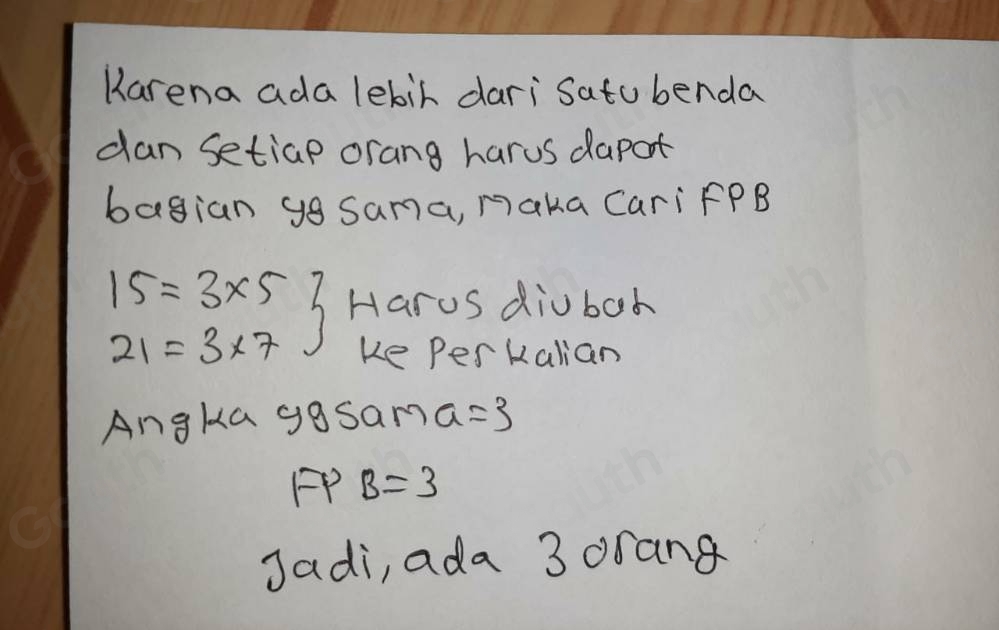 Karena ada lebih dari satu benda
dan setiap orang harus dapat
bagian yg sama, maka cari FPB
15 = 3x5 } Harus diubah
21 = 3x7 } ke perkalian
Angka yg sama = 3
FPB = 3
Jadi, ada 3 orang